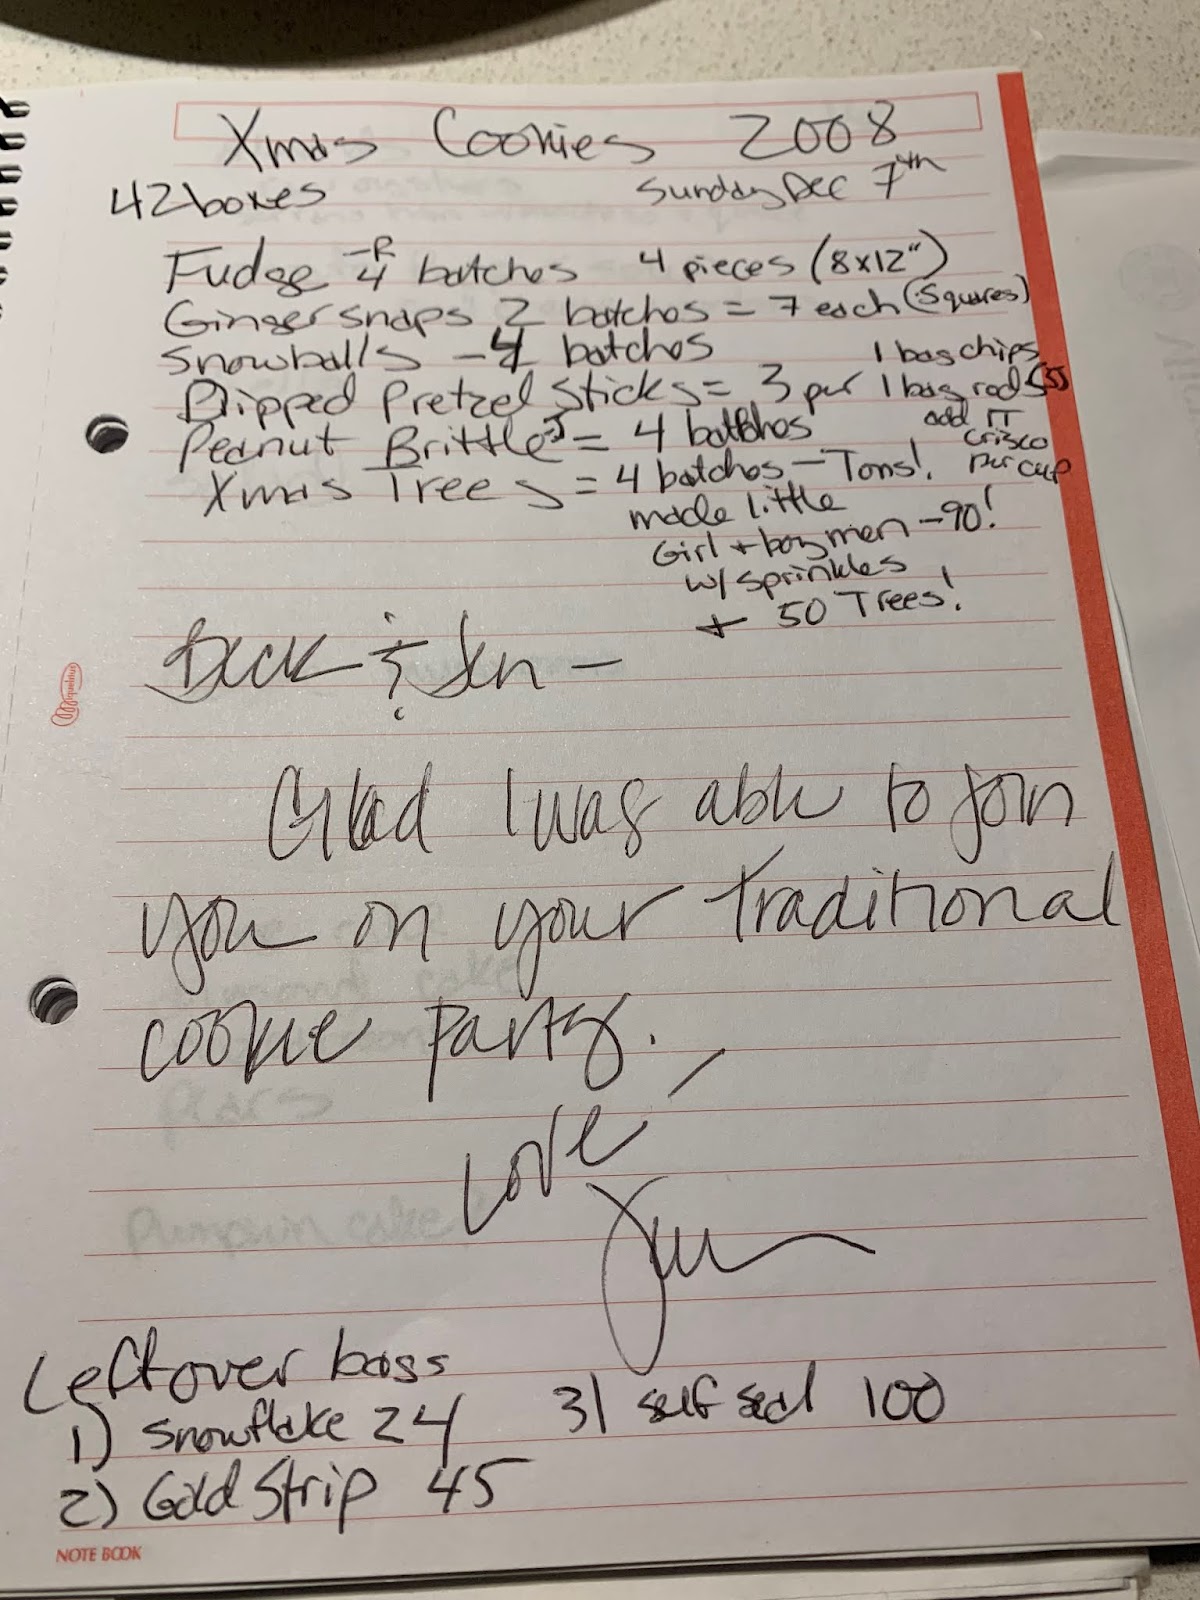 Xmas Cookies 2008
42 boxes Sunday Dec 7th
Fudge -R 4 batches 4 pieces (8x12")
Gingersnaps 2 batches = 7 each (squares)
Snowballs -4 batches
Dipped Pretzel Sticks = 3 per 1 bag chips
1 bag rods
Peanut Brittle = 4 batches
add 1T
Crisco
per cup
Xmas Trees = 4 batches - Tons!
made little
Girl + boy men - 90!
w/ sprinkles
+ 50 Trees!
& Jen -
Glad I was able to join
you on your traditional
cookie party.
Love,
Leftover bags
1) Snowflake 24
2) Gold Strip 45
3) self seal 100
NOTE BOOK
Pears
Pumpkin cake